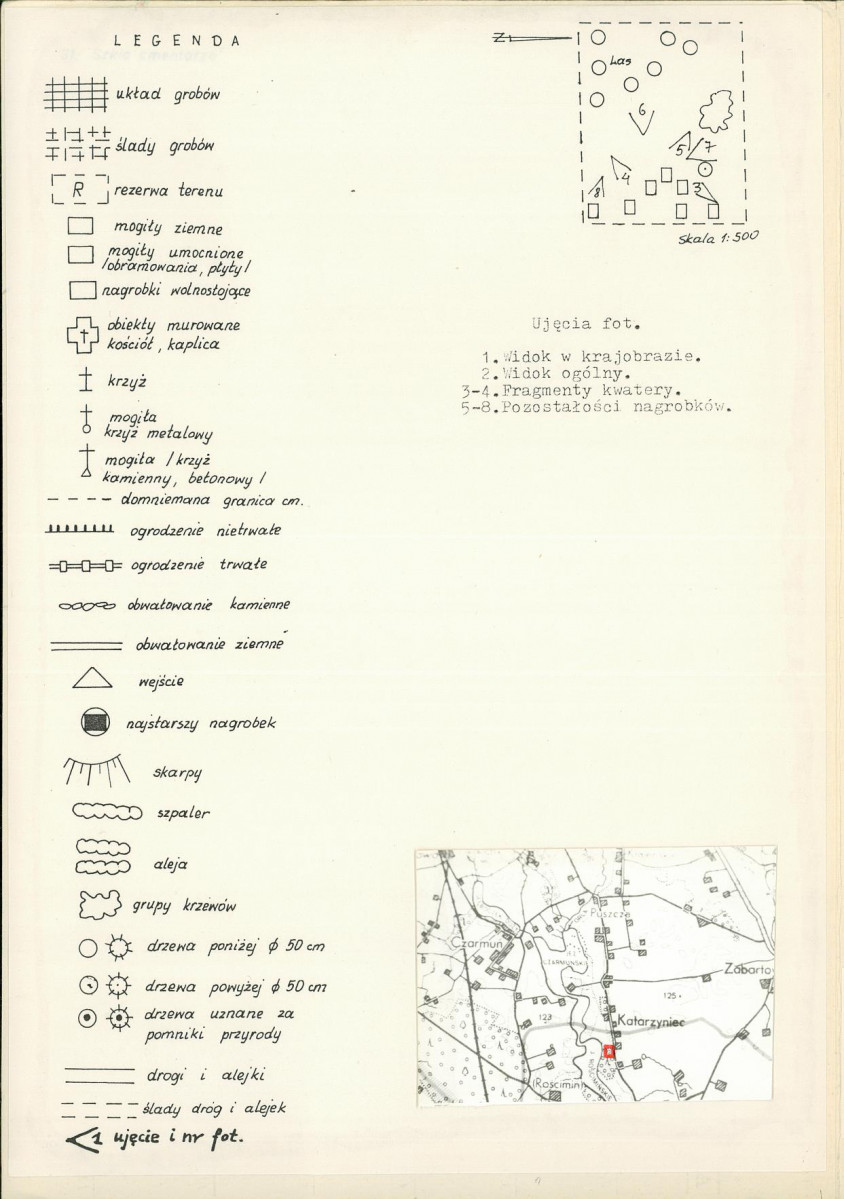 LEGENDA
układ grobów
ślady grobów
R rezerwa terenu
mogiły ziemne
mogiły umocnione
/obramowania, płyty/
nagrobki wolnostojące
obiekty murowane
kościół, kaplica
krzyż
mogiła
krzyż metalowy
mogiła /krzyż
kamienny, betonowy/
domniemana granica cm.
ogrodzenie nietrwałe
ogrodzenie trwałe
obwałowanie kamienne
obwałowanie ziemne
wejście
najstarszy nagrobek
skarpy
szpaler
aleja
grupy krzewów
drzewa poniżej ϕ 50 cm
drzewa powyżej ϕ 50 cm
drzewa uznane za
pomniki przyrody
drogi i alejki
ślady dróg i alejek
1 ujęcie i nr fot.
Las
6
5 7
4
8 3
Skala 1:500
Ujęcia fot.
1. Widok w krajobrazie.
2. Widok ogólny.
3-4. Fragmenty kwatery.
5-8. Pozostałości nagrobków.
Puszcza
Czarmuń
Zabarto
125
123
Katarzyniec
(Rościmin)